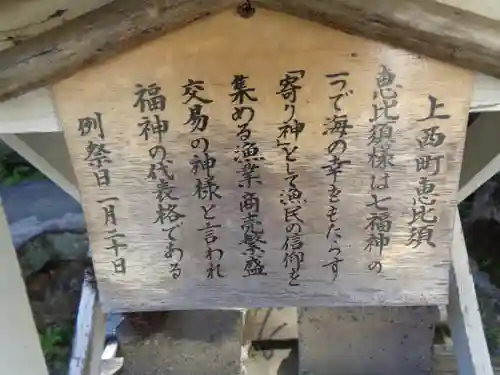 上西町恵比須
恵比須様は七福神の
一つで海の幸をもたらす
「寄り神」として漁民の信仰を
集める漁業 商売繁盛
交易の神様と言われ
福神の代表格である
例祭日 一月二十日